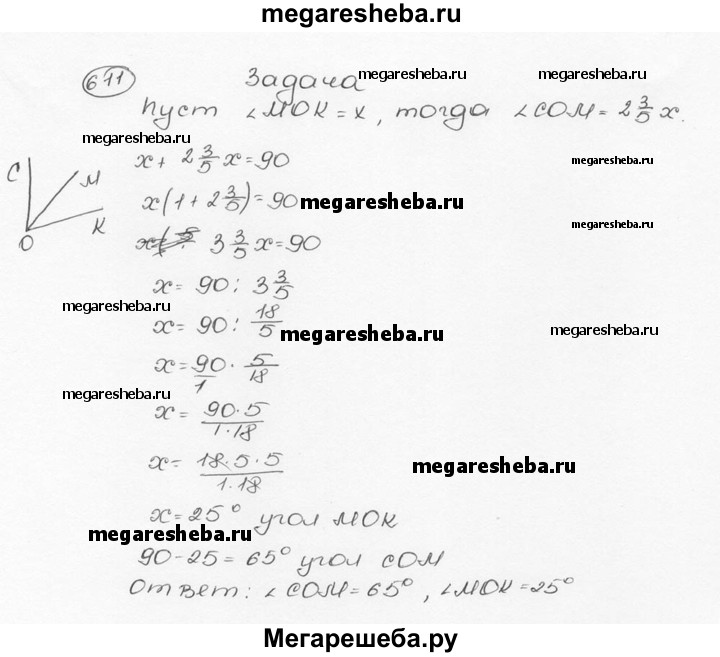 megaresheba.ru
611 Задача megaresheba.ru megaresheba.ru
пуст ∠МОК = x, тогда ∠СОМ = 2 3/5 x.
megaresheba.ru
С М К О
x + 2 3/5 x = 90 megaresheba.ru
x(1 + 2 3/5) = 90 megaresheba.ru
megaresheba.ru
3 3/5 x = 90
x = 90 : 3 3/5
megaresheba.ru
x = 90 : 18/5 megaresheba.ru megaresheba.ru
x = 90/1 · 5/18
megaresheba.ru
x = 90·5/1·18
x = 18·5·5/1·18 megaresheba.ru
x = 25° угол МОК
megaresheba.ru
90 - 25 = 65° угол СОМ
Ответ: ∠СОМ = 65°, ∠МОК = 25°
Мегарешеба.ру